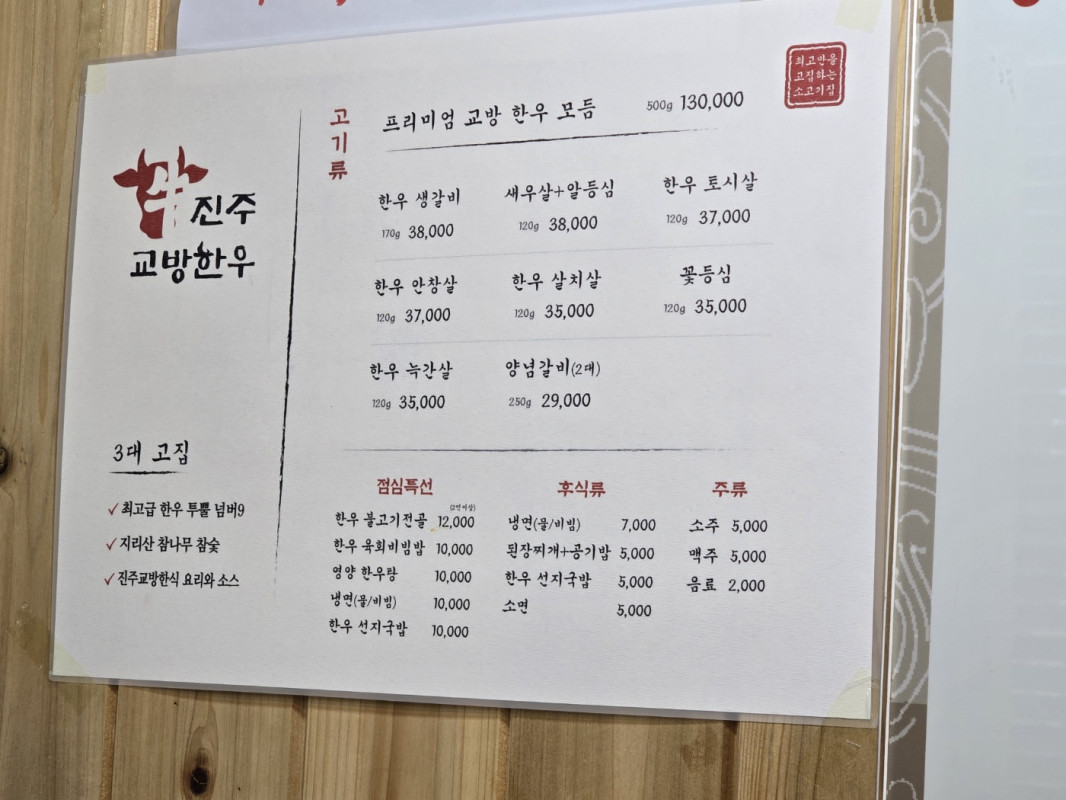 최고만을
고집하는
소고기집
진주
교방한우
3대 고집
✓최고급 한우 투뿔 넘버9
✓지리산 참나무 참숯
✓진주교방한식 요리와 소스
고기류
프리미엄 교방 한우 모듬 500g 130,000
한우 생갈비 새우살+알등심 한우 토시살
170g 38,000 120g 38,000 120g 37,000
한우 안창살 한우 살치살 꽃등심
120g 37,000 120g 35,000 120g 35,000
한우 늑간살 양념갈비(2대)
120g 35,000 250g 29,000
점심특선
(2인이상)
한우 불고기전골 12,000
한우 육회비빔밥 10,000
영양 한우탕 10,000
냉면(물/비빔) 10,000
한우 선지국밥 10,000
후식류
냉면(물/비빔) 7,000
된장찌개+공기밥 5,000
한우 선지국밥 5,000
소면 5,000
주류
소주 5,000
맥주 5,000
음료 2,000